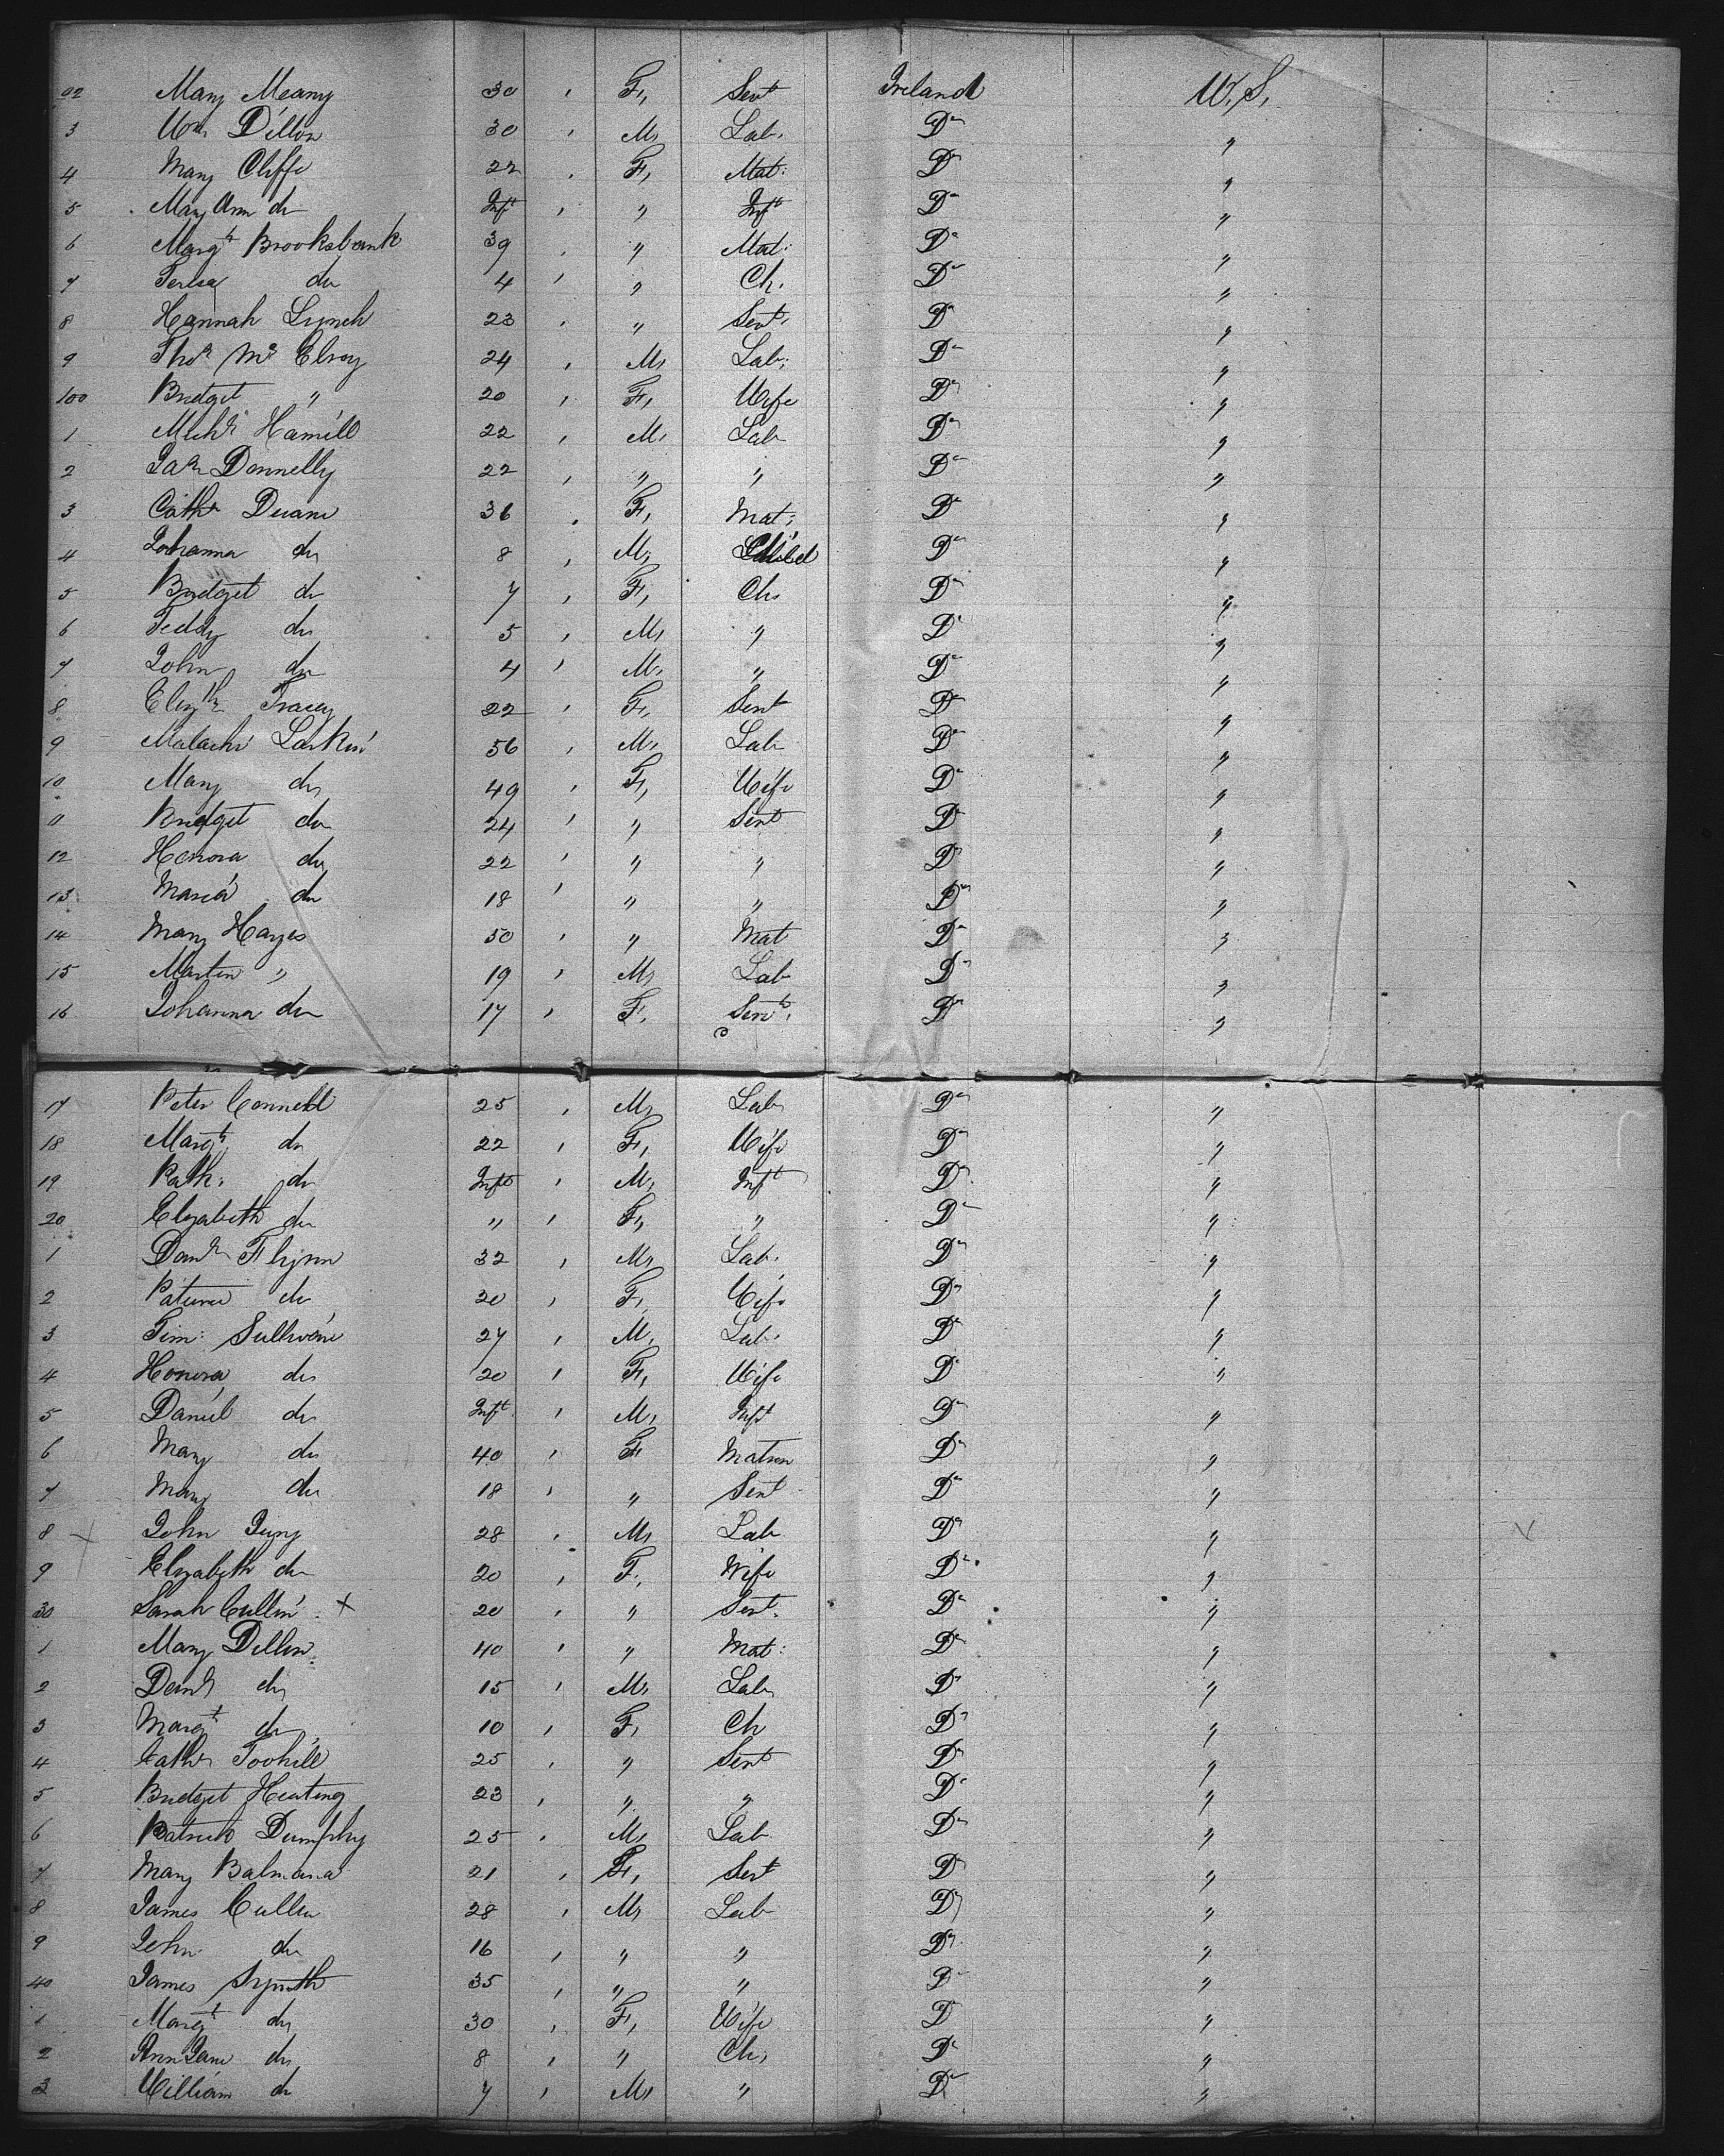 92 Mary Meany 30 , F, Servt Ireland U,S,
3 Wm Dillon 30 , M, Lab. Do "
4 Mary Cliffe 22 , F, Mat: Do "
5 Mary Ann do Inft , " Inft Do "
6 Margt Brooksbank 39 , " Mat: Do "
7 Teresa do 4 , " Ch. Do "
8 Hannah Lynch 23 , " Servt, Do "
9 Thos McElroy 24 , M, Lab, Do "
100 Bridget " 20 , F, Wife Do "
1 Michl Hamill 22 , M, Lab Do "
2 Jas Donnelly 22 , " " Do "
3 Cathe Duane 36 , F, Mat: Do "
4 Johanna do 8 , M, Child Do "
5 Bridget do 7 , F, Ch. Do "
6 Teddy do 5 , M, " Do "
7 John do 4 , M, " Do "
8 Elizth Tracey 22 , F, Servt Do "
9 Malachi Larkin 56 , M, Lab Do "
10 Mary do 49 , F, Wife Do "
11 Bridget do 24 , " Servt Do "
12 Honora do 22 , " " Do "
13 Maria do 18 , " " Do "
14 Mary Hayes 50 , " Mat Do "
15 Martin " 19 , M, Lab Do "
16 Johanna do 17 , F, Servt, Do "
17 Peter Connell 25 , M, Lab Do "
18 Margt do 22 , F, Wife Do "
19 Patk. do Inft , M, Inft Do "
20 Elizabeth do " , F, " Do "
1 Danl Flynn 32 , M, Lab. Do "
2 do 20 , F, Wife Do "
3 Tim: Sullivan 27 , M, Lab. Do "
4 Honora do 20 , F, Wife Do "
5 Daniel do Inft , M, Inft Do "
6 Mary do 40 , F Matron Do "
7 Mary do 18 , " Servt Do "
8 John 28 , M, Lab Do "
9 Elizabeth do 20 , F, Wife Do "
30 Sarah Cullin x 20 , " Servt. Do "
1 Mary Dillon 40 , " Mat: Do "
2 Danl do 15 , M, Lab Do "
3 Margt do 10 , F, Ch Do "
4 Cathe Toohill 25 , " Servt Do "
5 Bridget Keating 23 , " " Do "
6 Patrick Dumphy 25 , M, Lab Do "
7 Mary 21 , F, Servt Do "
8 James Cullen 28 , M, Lab Do "
9 John do 16 , " " Do "
40 James Smyth 35 , " " Do "
1 Margt do 30 , F, Wife Do "
2 Ann Jane do 8 , " Ch, Do "
3 William do 7 , M, " Do "